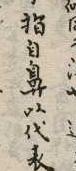 指自鼻以代表